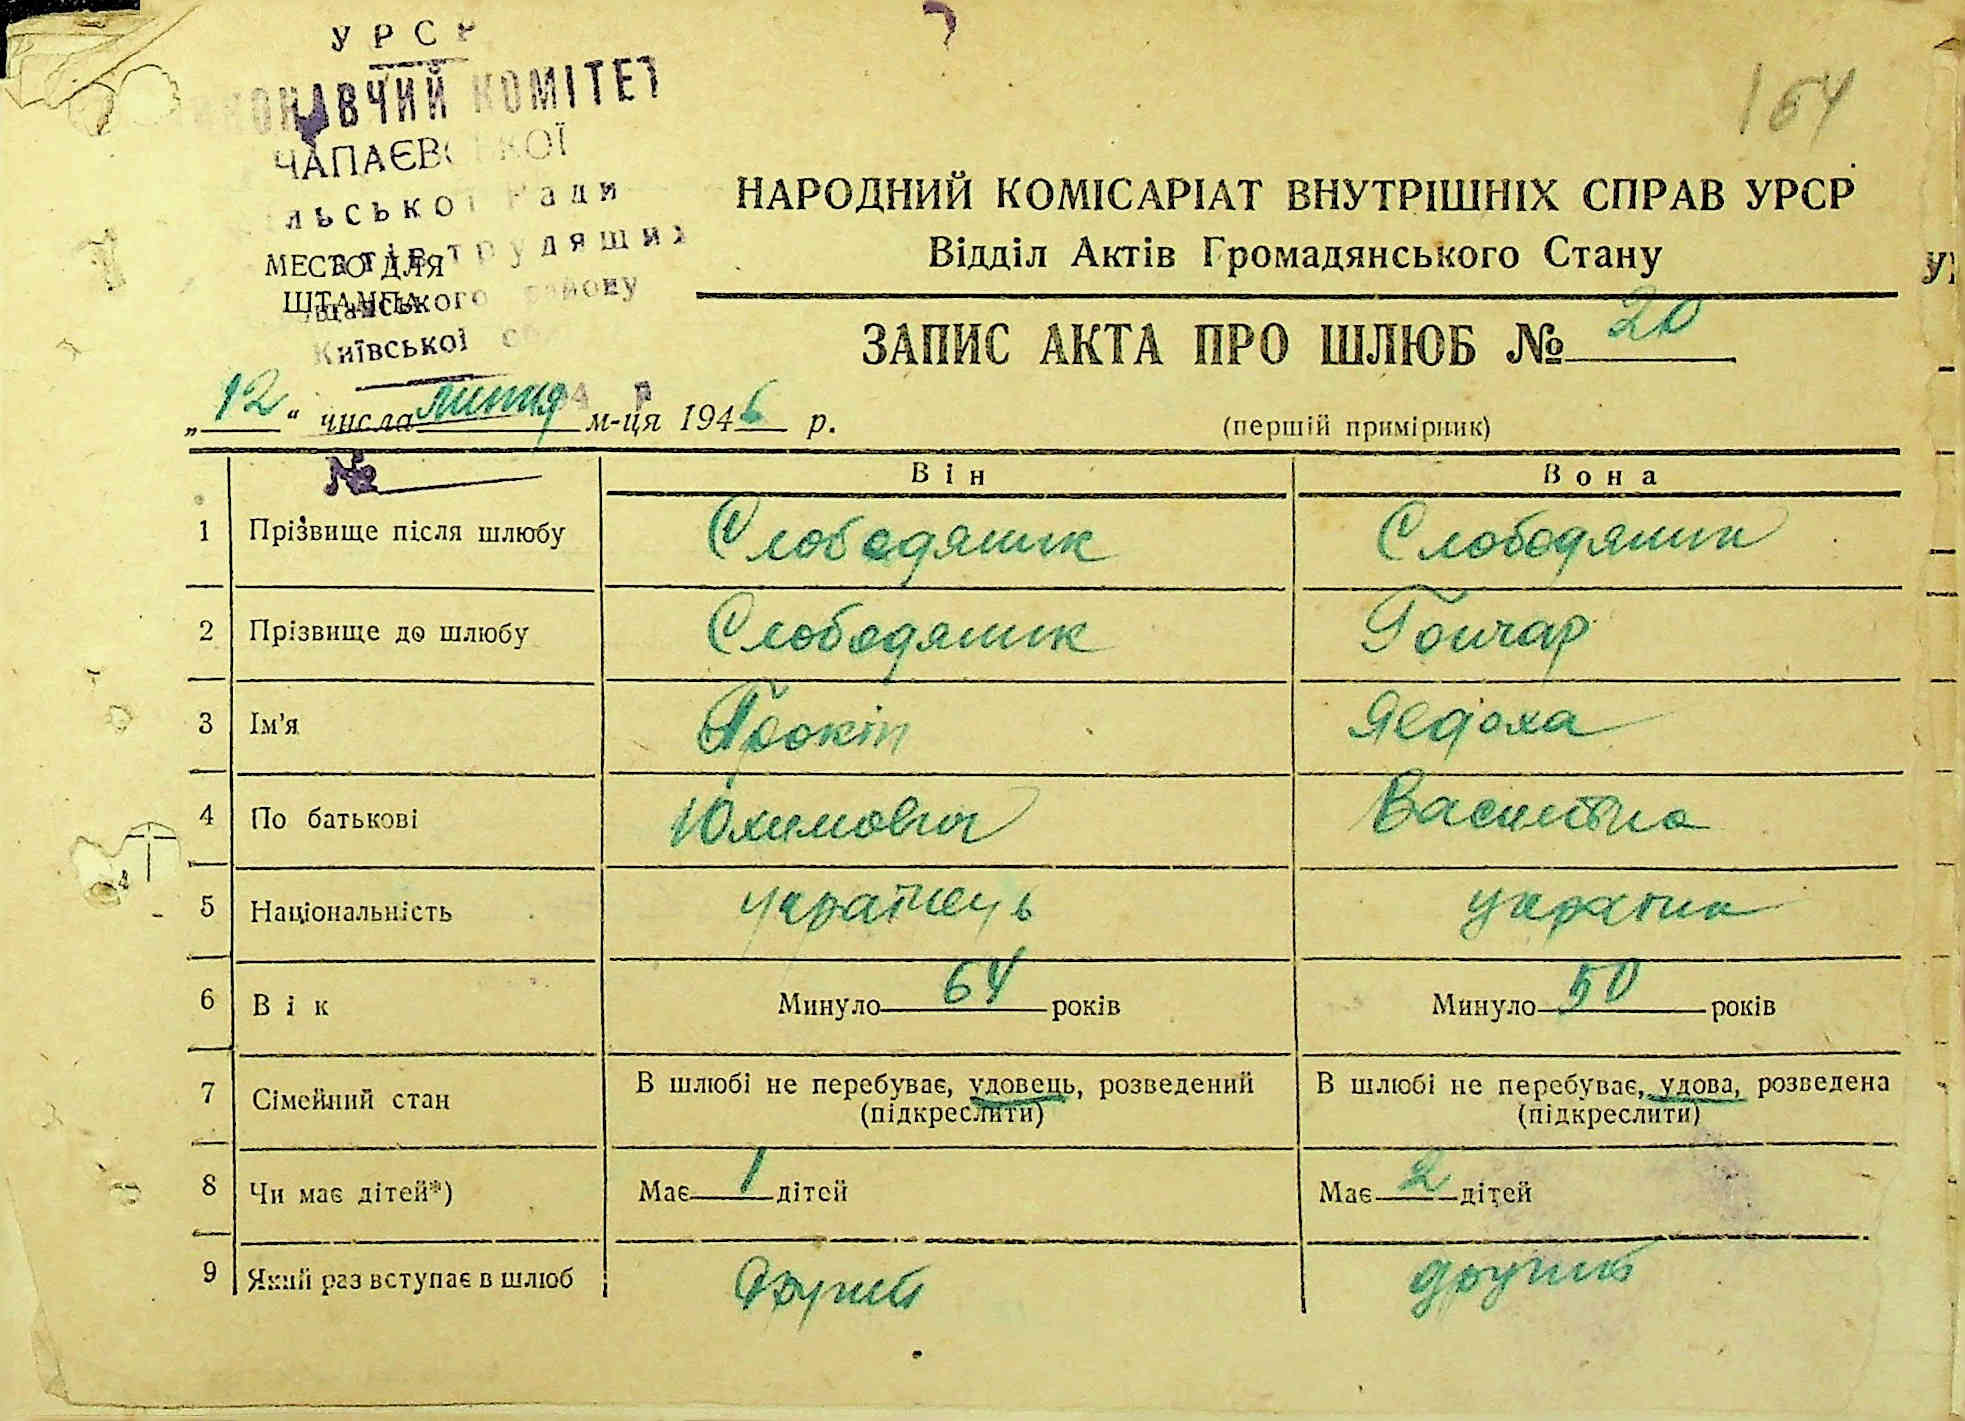 УРСР
ВИКОНАВЧИЙ КОМІТЕТ
ЧАПАЄВСЬКОЇ
сільської Ради
депутатів трудящих
району
Київської
МЕСТО ДЛЯ
ШТАМПА
164
НАРОДНИЙ КОМІСАРІАТ ВНУТРІШНІХ СПРАВ УРСР
Відділ Актів Громадянського Стану
ЗАПИС АКТА ПРО ШЛЮБ № 20
„12“ числа липня м-ця 1946 р.
(перший примірник)
№
Він Вона
1 Прізвище після шлюбу Слободяник Слободяник
2 Прізвище до шлюбу Слободяник Гончар
3 Ім'я Прокіп Явдоха
4 По батькові Юхимович Василівна
5 Національність українець українка
6 Вік Минуло 64 років Минуло 50 років
7 Сімейний стан В шлюбі не перебуває, удовець, розведений (підкреслити) В шлюбі не перебуває, удова, розведена (підкреслити)
8 Чи має дітей*) Має 1 дітей Має 2 дітей
9 Який раз вступає в шлюб Другий другий